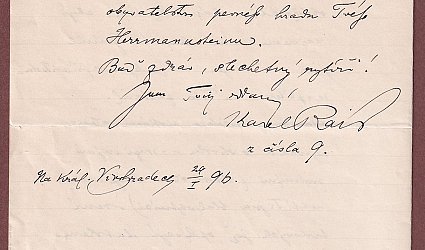 obyvatelstvu panského hradu Tvého
Herrmannsteinu.
Buď zdráv, šlechetný rytíři!
Jsem Tvůj oddaný
Karel Rais
z čísla 9.
Na Král. Vinohradech 24/I 96.